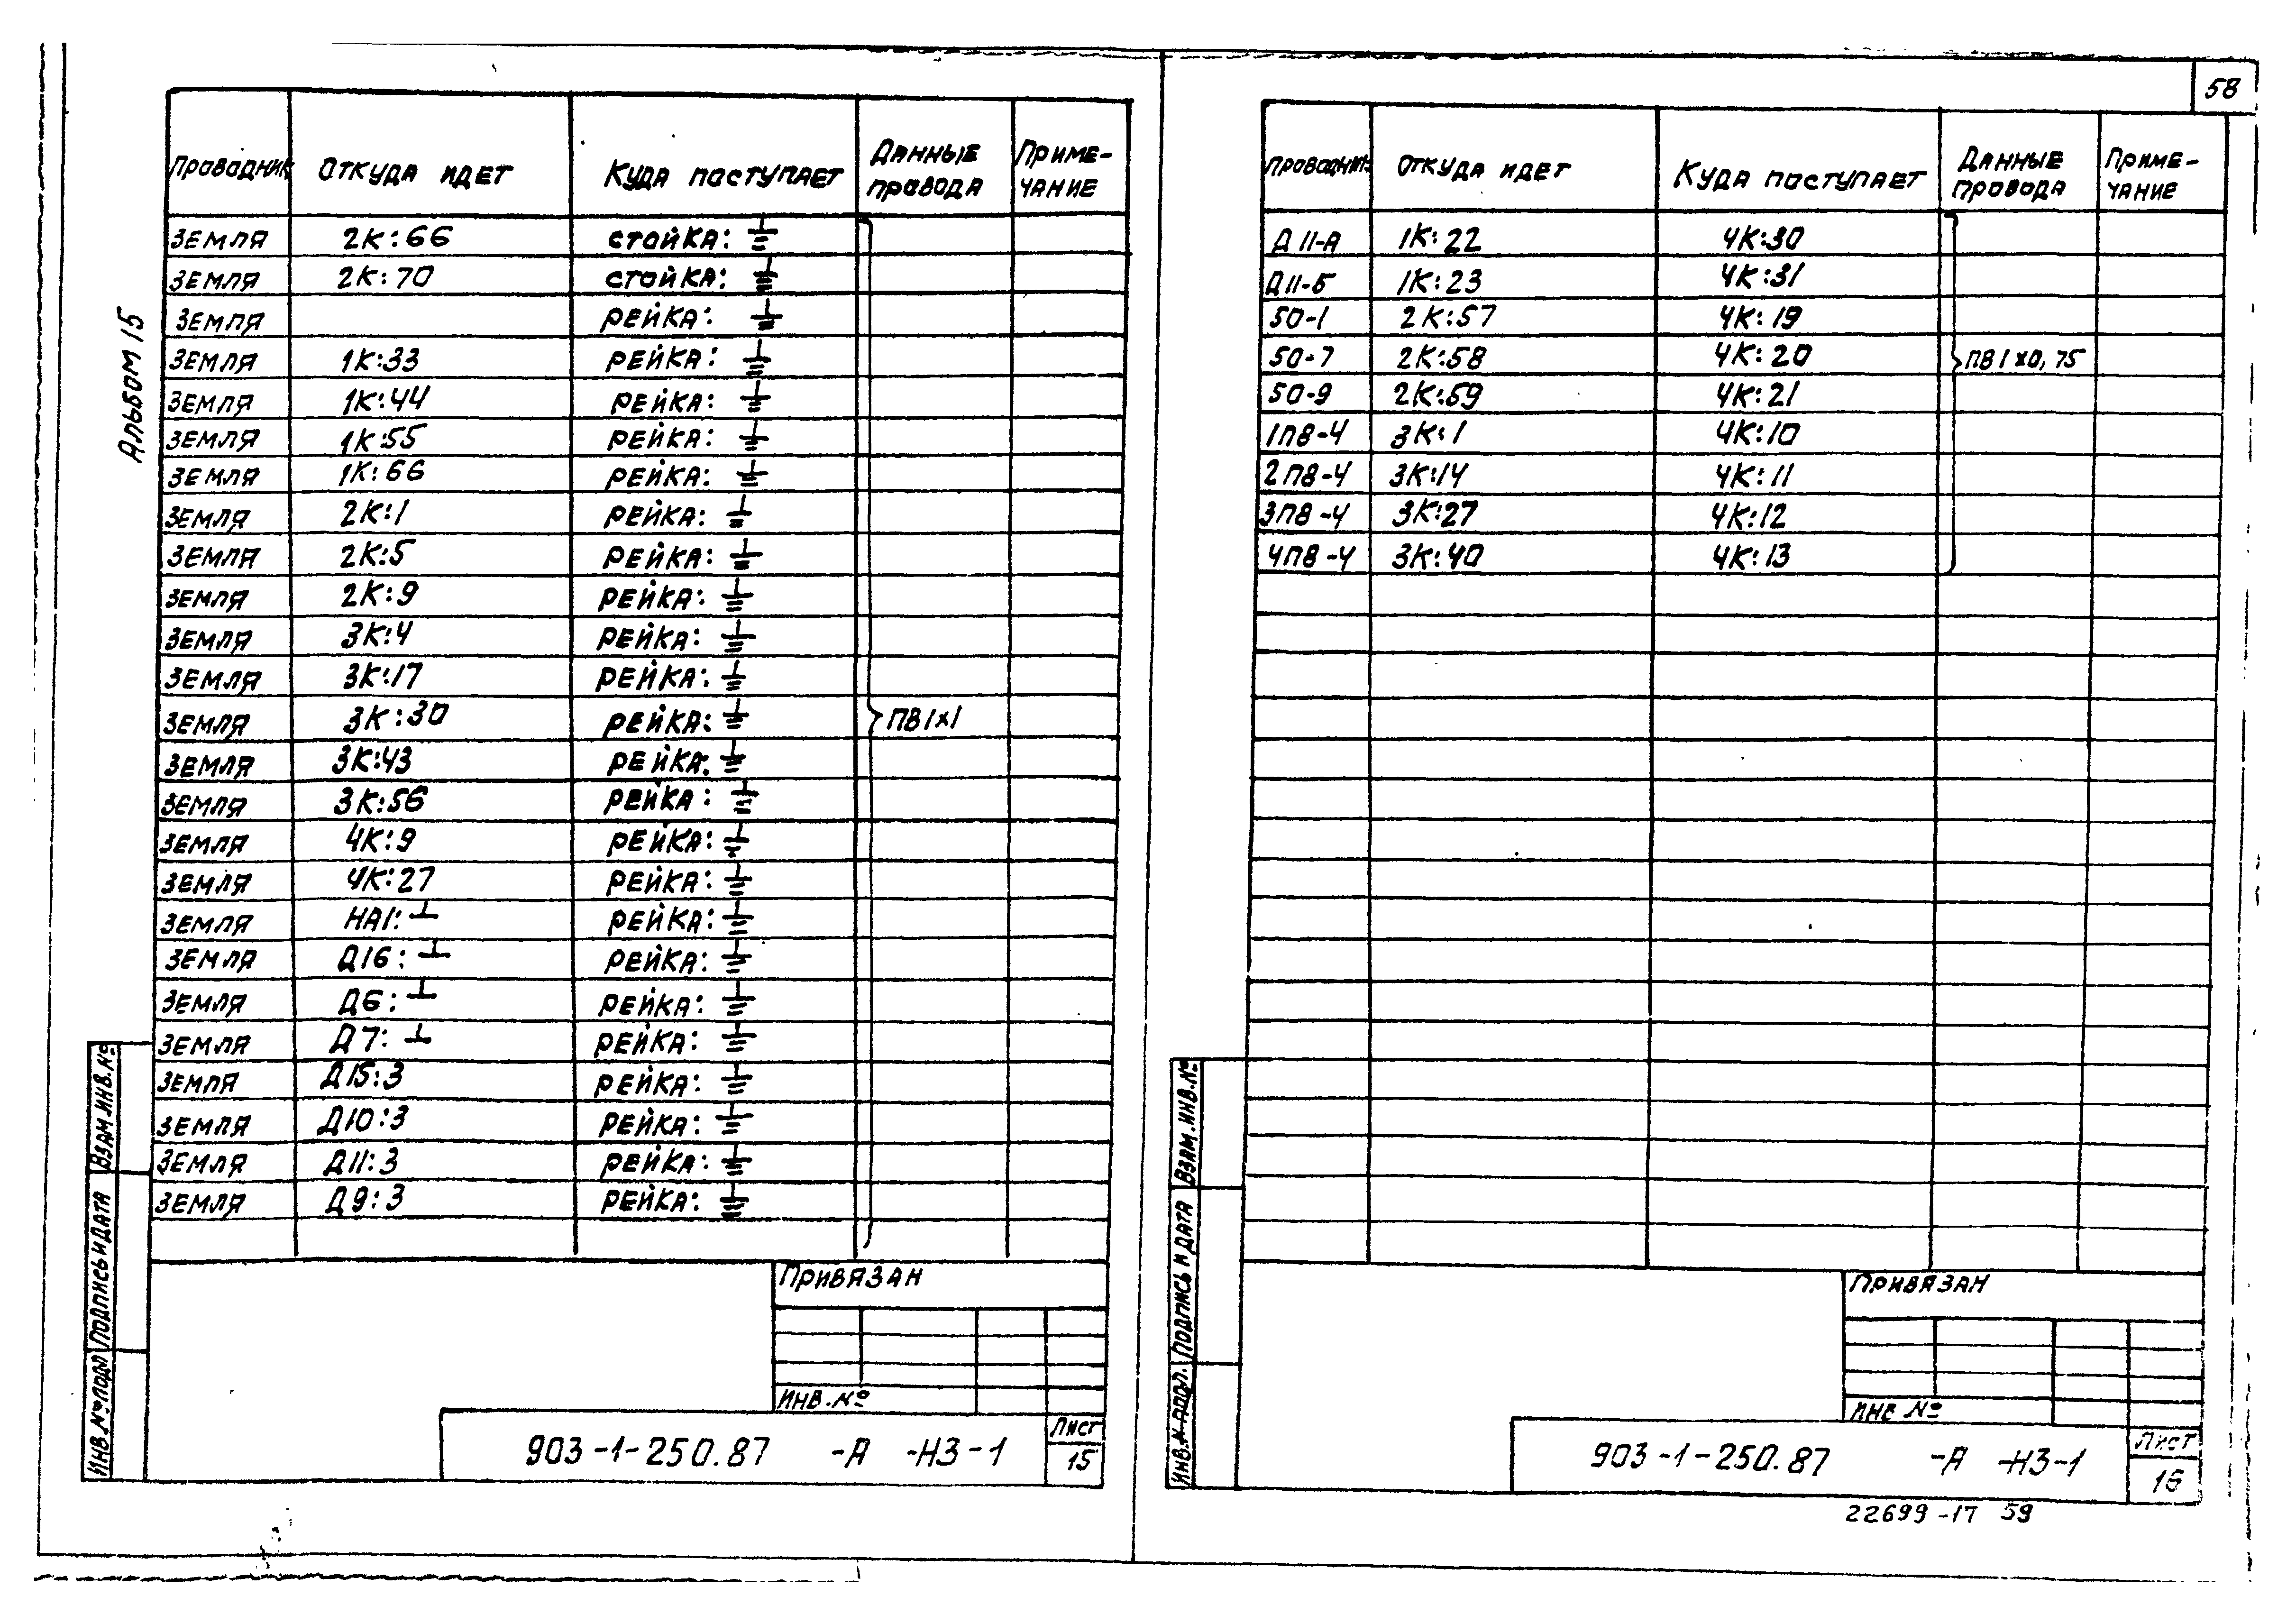 58
Альбом 15
Проводник Откуда идет Куда поступает Данные провода Приме-чание
Земля 2К:66 стойка: ⏚
Земля 2К:70 стойка: ⏚
Земля рейка: ⏚
Земля 1К:33 рейка: ⏚
Земля 1К:44 рейка: ⏚
Земля 1К:55 рейка: ⏚
Земля 1К:66 рейка: ⏚
Земля 2К:1 рейка: ⏚
Земля 2К:5 рейка: ⏚
Земля 2К:9 рейка: ⏚
Земля 3К:4 рейка: ⏚
Земля 3К:17 рейка: ⏚
Земля 3К:30 рейка: ⏚ ПВ 1х1
Земля 3К:43 рейка: ⏚
Земля 3К:56 рейка: ⏚
Земля 4К:9 рейка: ⏚
Земля 4К:27 рейка: ⏚
Земля НА1: ⊥ рейка: ⏚
Земля Д16: ⊥ рейка: ⏚
Земля Д6: ⊥ рейка: ⏚
Земля Д7: ⊥ рейка: ⏚
Земля Д15:3 рейка: ⏚
Земля Д10:3 рейка: ⏚
Земля Д11:3 рейка: ⏚
Земля Д9:3 рейка: ⏚
Привязан
Инв. №
903-1-250.87 -А -НЗ-1
Лист
15
Инв.№ подл Подпись и дата Взам.инв.№
Проводник Откуда идет Куда поступает Данные провода Приме-чание
Д11-А 1К:22 4К:30
Д11-Б 1К:23 4К:31
50-1 2К:57 4К:19
50-7 2К:58 4К:20 ПВ 1х0,75
50-9 2К:59 4К:21
1П8-4 3К:1 4К:10
2П8-4 3К:14 4К:11
3П8-4 3К:27 4К:12
4П8-4 3К:40 4К:13
Привязан
Инв №
903-1-250.87 -А -НЗ-1
Лист
16
Инв.№ подл. Подпись и дата Взам.инв.№
22699-17 59